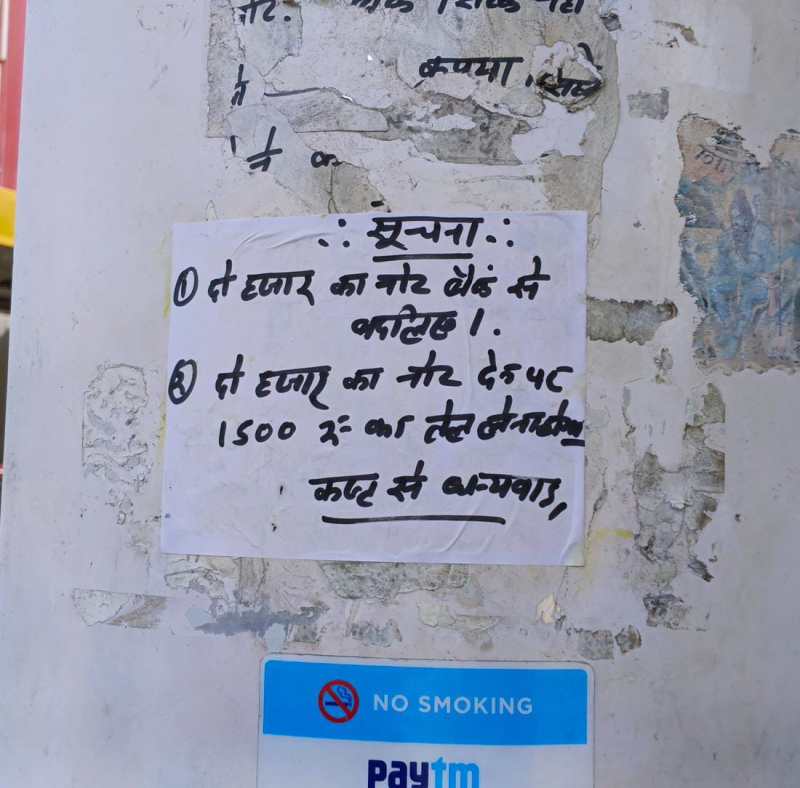 नोट.
ने कृपया,
ने
∴ सूचना ∴
① दो हजार का नोट बैंक से
बदलिए ।.
② दो हजार का नोट देने पर
1500 रु= का तेल लेना होगा
कष्ट से धन्यवाद,
NO SMOKING
paytm